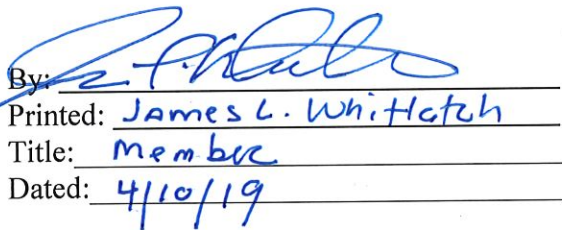 By:
Printed: James L. Whitlatch
Title: Member
Dated: 4/10/19